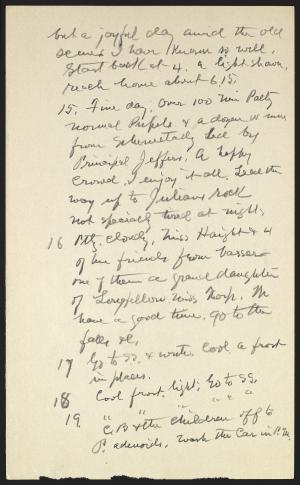 but a joyful day amid the old
scenes I have known so well.
Start back at 4. a light shower,
reach home about 6,15.
15. Fine day, over 100 in Party
normal Pupils & a dozen or more
from Schenectady led by
Principal Jeffers. A happy
crowd, & enjoy it all. Lead the
way up to Julian's rock
not specially tired at night,
16 Ptly. cloudy, Miss Haight & 4
of her friends from Vassar
one of them a grand daughter
of Longfellow, Miss Thorp. We
have a good time. Go to the
falls &c,
17 Go to SS. & write. Cool a frost
in places.
18 Cool frost, light; Go to SS,
19. " " " " "
C.B & the children off to
P. adenoids, wash the Car in P.M.